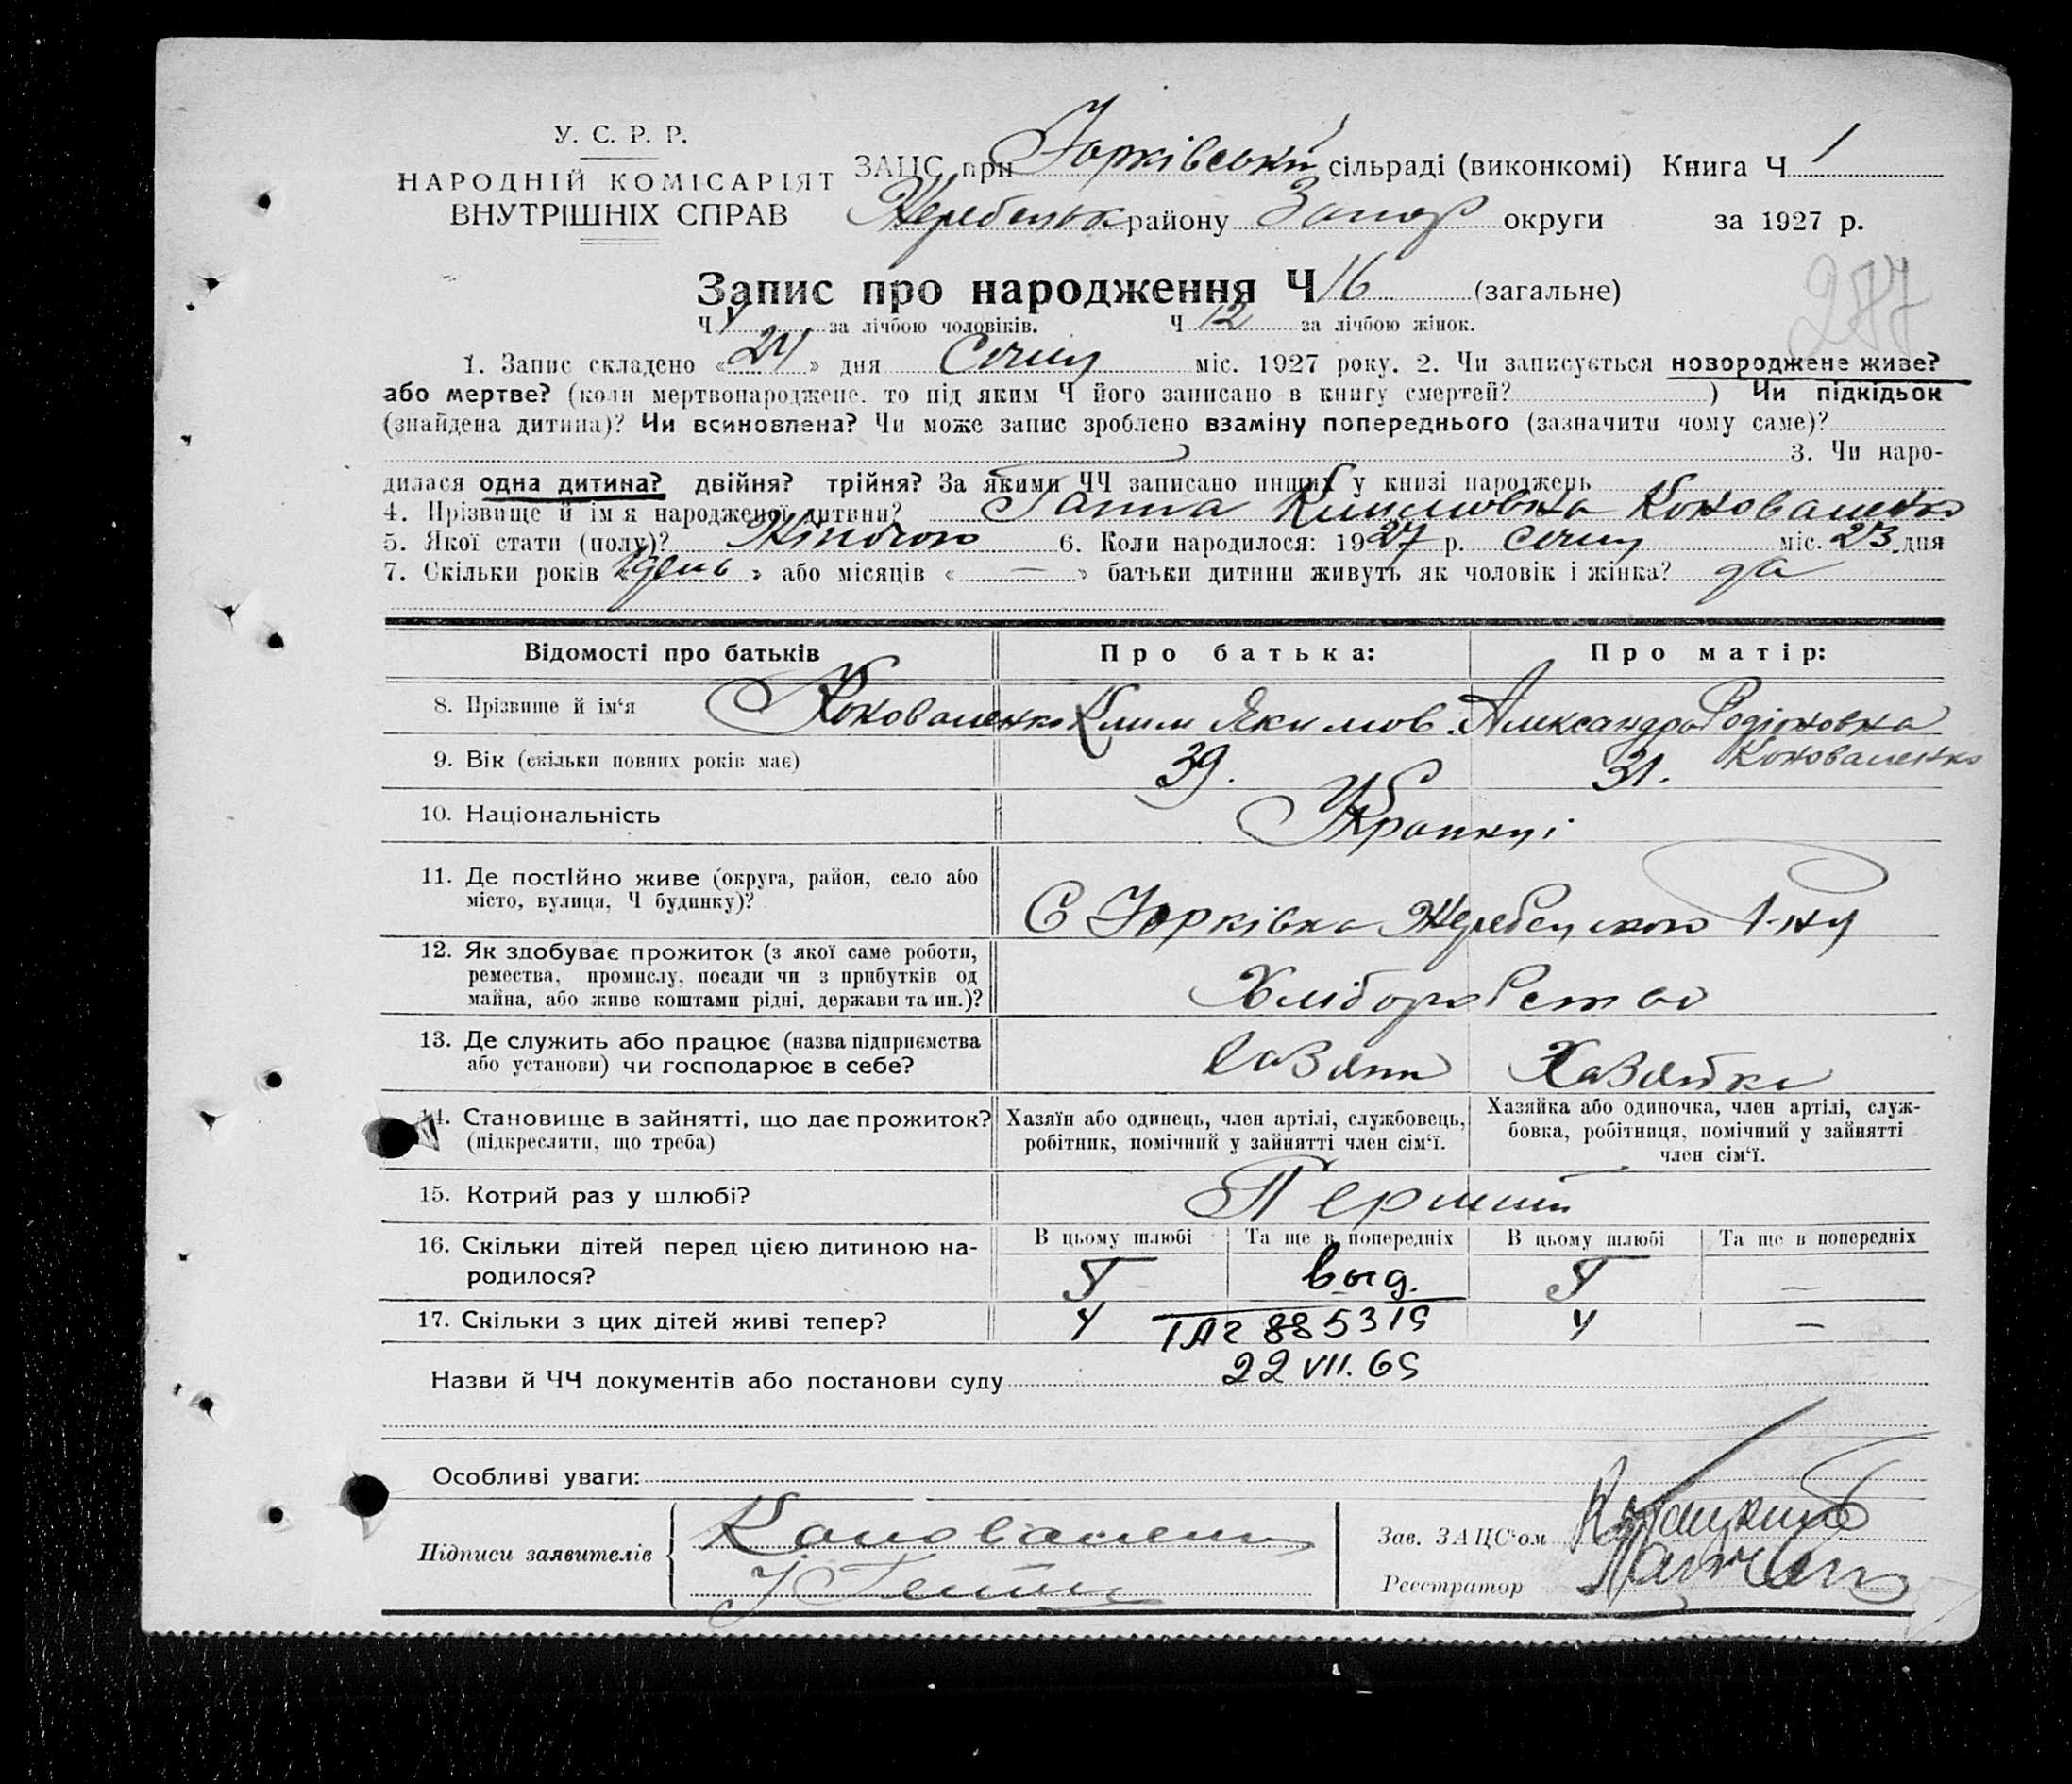 У. С. Р. Р.
НАРОДНІЙ КОМІСАРІЯТ
ВНУТРІШНІХ СПРАВ
ЗАЦС при Юрківській сільраді (виконкомі) Книга Ч 1
Жеребецьк району Запор округи за 1927 р.
287
Запис про народження Ч 16 (загальне)
Ч 4 за лічбою чоловіків. Ч 12 за лічбою жінок.
1. Запис складено « 24 » дня Січня міс. 1927 року. 2. Чи записується новороджене живе?
або мертве? (коли мертвонароджене, то під яким Ч його записано в книгу смертей? ) Чи підкідьок
(знайдена дитина)? Чи всиновлена? Чи може запис зроблено взаміну попереднього (зазначити чому саме)?
3. Чи наро-
дилася одна дитина? двійня? трійня? За якими ЧЧ записано инших у книзі народжень
4. Прізвище й ім'я народженої дитини? Ганна Климовна Коноваленко
5. Якої стати (полу)? Жіночою 6. Коли народилося: 1927 р. Січня міс. 23 дня
7. Скільки років « » або місяців « — » батьки дитини живуть як чоловік і жінка? да
Відомості про батьків Про батька: Про матір:
8. Прізвище й ім'я Коноваленко Клим Якимов. Александра Родіоновна
Коноваленко
9. Вік (скільки повних років має) 39. 31.
10. Національність Українці
11. Де постійно живе (округа, район, село або
місто, вулиця, Ч будинку)? С Юрківка Жеребецького Р-ну
12. Як здобуває прожиток (з якої саме роботи,
ремества, промислу, посади чи з прибутків од
майна, або живе коштами рідні, держави та ин.)? Хліборобство
13. Де служить або працює (назва підприємства
або установи) чи господарює в себе? Хазяїн Хазяйка
14. Становище в зайнятті, що дає прожиток?
(підкреслити, що треба)
Хазяїн або одинець, член артілі, службовець,
робітник, помічний у зайнятті член сім'ї.
Хазяйка або одиночка, член артілі, служ-
бовка, робітниця, помічний у зайнятті
член сім'ї.
15. Котрий раз у шлюбі? Перший
В цьому шлюбі Та ще в попередніх В цьому шлюбі Та ще в попередніх
16. Скільки дітей перед цією дитиною на-
родилося? 5 5 —
выд.
17. Скільки з цих дітей живі тепер? 4 4 —
885319
22 VII. 69
Назви й ЧЧ документів або постанови суду
Особливі уваги:
Підписи заявителів Коноваленко
Зав. ЗАЦС'ом
Реєстратор